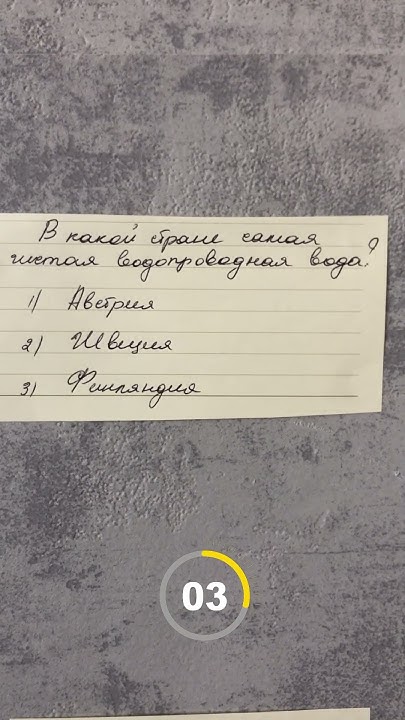 В какой стране самая
чистая водопроводная вода?
1) Австрия
2) Швеция
3) Финляндия
03